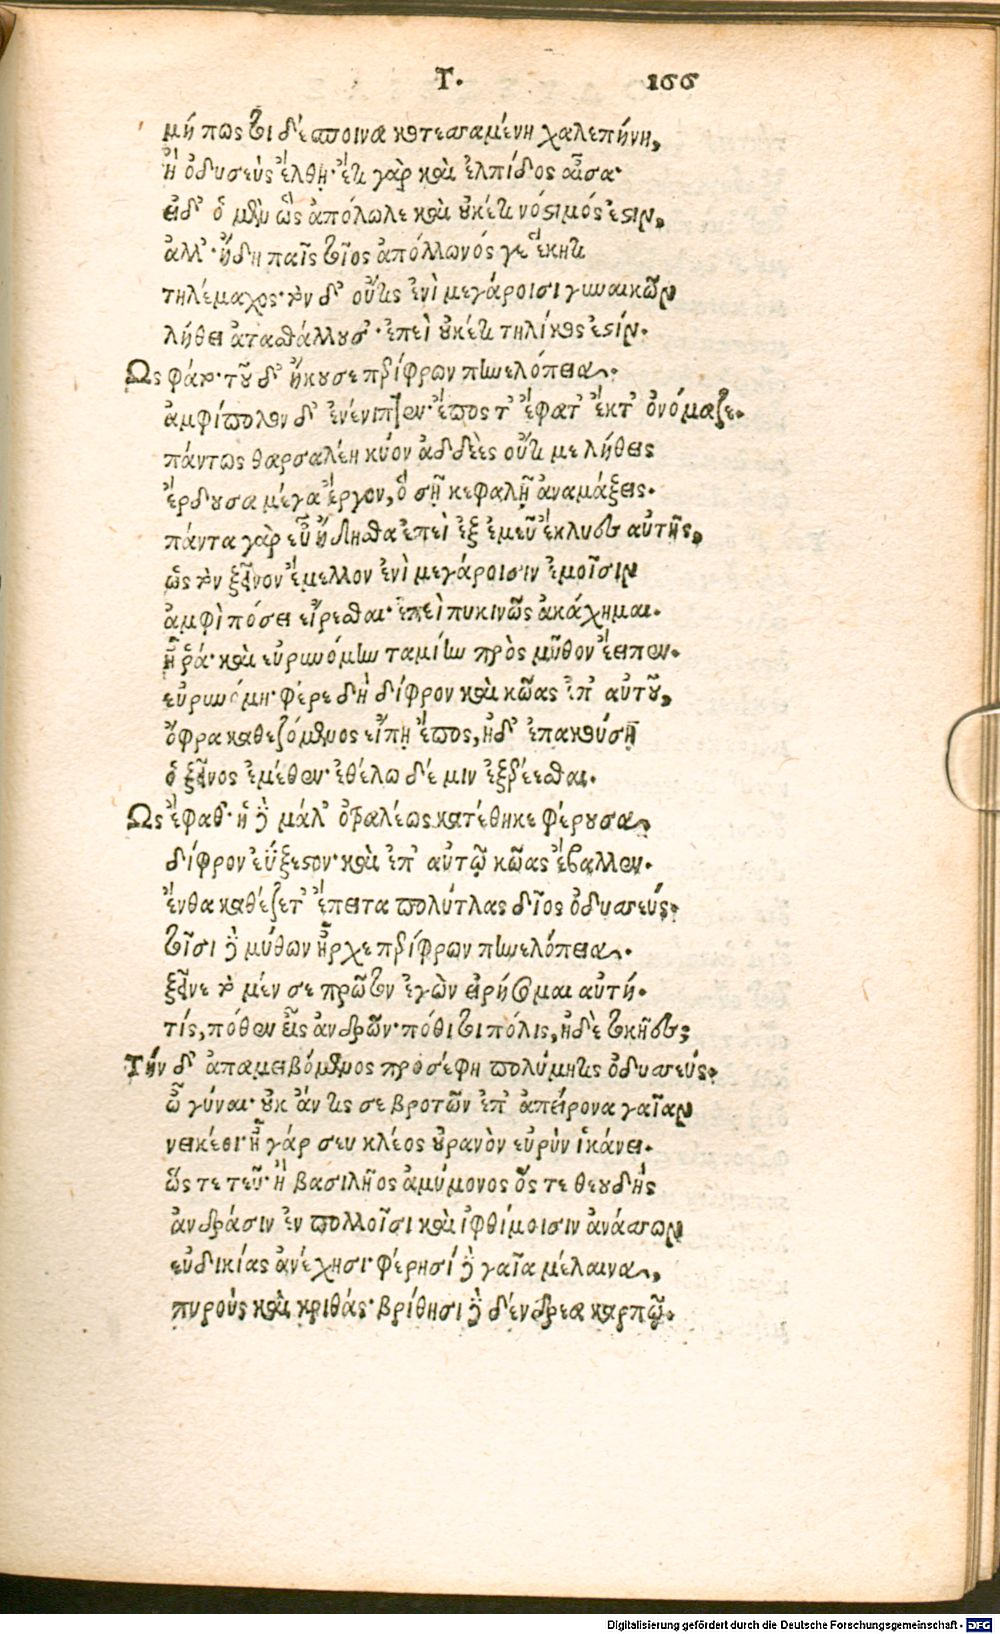 Τ. 166
μή πως τοι δέσποινα κοτεσσαμένη χαλεπήνῃ,
ἢ ὀδυσεὺς ἔλθῃ· ἔτι γὰρ καὶ ἐλπίδος αἶσα·
εἰ δ' ὁ μὲν ὣς ἀπόλωλε καὶ οὐκέτι νόσιμός ἐστιν,
ἀλλ' ἤδη παῖς τοῖος ἀπόλλωνός γε ἕκητι
τηλέμαχος· τὸν δ' οὔτις ἐνὶ μεγάροισι γυναικῶν
λήθει ἀτασθάλλουσ'· ἐπεὶ οὐκέτι τηλίκος ἐστίν.
Ως φάτο· τοῦ δ' ἤκουσε περίφρων πηνελόπεια·
ἀμφίπολον δ' ἐνένιπτεν· ἔπος τ' ἔφατ' ἔκτ' ὀνόμαζε.
πάντως θαρσαλέη κύον ἀδδεὲς οὔτι με λήθεις
ἔρδουσα μέγα ἔργον, ὃ σῇ κεφαλῇ ἀναμάξεις.
πάντα γὰρ εὖ ᾔδησθα ἐπεὶ ἐξ ἐμεῦ ἔκλυες αὐτῆς,
ὡς τὸν ξεῖνον ἔμελλον ἐνὶ μεγάροισιν ἐμοῖσιν
ἀμφὶ πόσει εἴρεσθαι· ἐπεὶ πυκινῶς ἀκάχημαι.
ἦ ῥά· καὶ εὐρυνόμην ταμίην πρὸς μῦθον ἔειπεν.
εὐρυνόμη· φέρε δὴ δίφρον καὶ κῶας ἐπ' αὐτοῦ,
ὄφρα καθεζόμενος εἴπῃ ἔπος, ἠδ' ἐπακούσῃ
ὁ ξεῖνος ἐμέθεν· ἐθέλω δέ μιν ἐξερέεσθαι.
Ως ἔφαθ'· ἡ δὲ μάλ' ὀτραλέως κατέθηκε φέρουσα
δίφρον ἐΰξεστον· καὶ ἐπ' αὐτῷ κῶας ἔβαλλεν.
ἔνθα καθέζετ' ἔπειτα πολύτλας δῖος ὀδυσσεύς·
τοῖσι δὲ μύθων ἦρχε περίφρων πηνελόπεια.
ξεῖνε τὸ μέν σε πρῶτον ἐγὼν εἰρήσομαι αὐτή.
τίς, πόθεν εἶς ἀνδρῶν· πόθι τοι πόλις, ἠδὲ τοκῆες;
Τήν δ' ἀπαμειβόμενος προσέφη πολύμητις ὀδυσσεύς.
ὦ γύναι· οὐκ ἄν τις σε βροτῶν ἐπ' ἀπείρονα γαῖαν
νεικέοι· ἦ γάρ σευ κλέος οὐρανὸν εὐρὺν ἱκάνει.
ὥς τε τεῦ· ἢ βασιλῆος ἀμύμονος ὅς τε θεουδὴς
ἀνδράσιν ἐν πολλοῖσι καὶ ἰφθίμοισιν ἀνάσσων
εὐδικίας ἀνέχησι· φέρησι δὲ γαῖα μέλαινα,
πυροὺς καὶ κριθάς· βρίθησι δὲ δένδρεα καρπῷ.
Digitalisierung gefördert durch die Deutsche Forschungsgemeinschaft - DFG